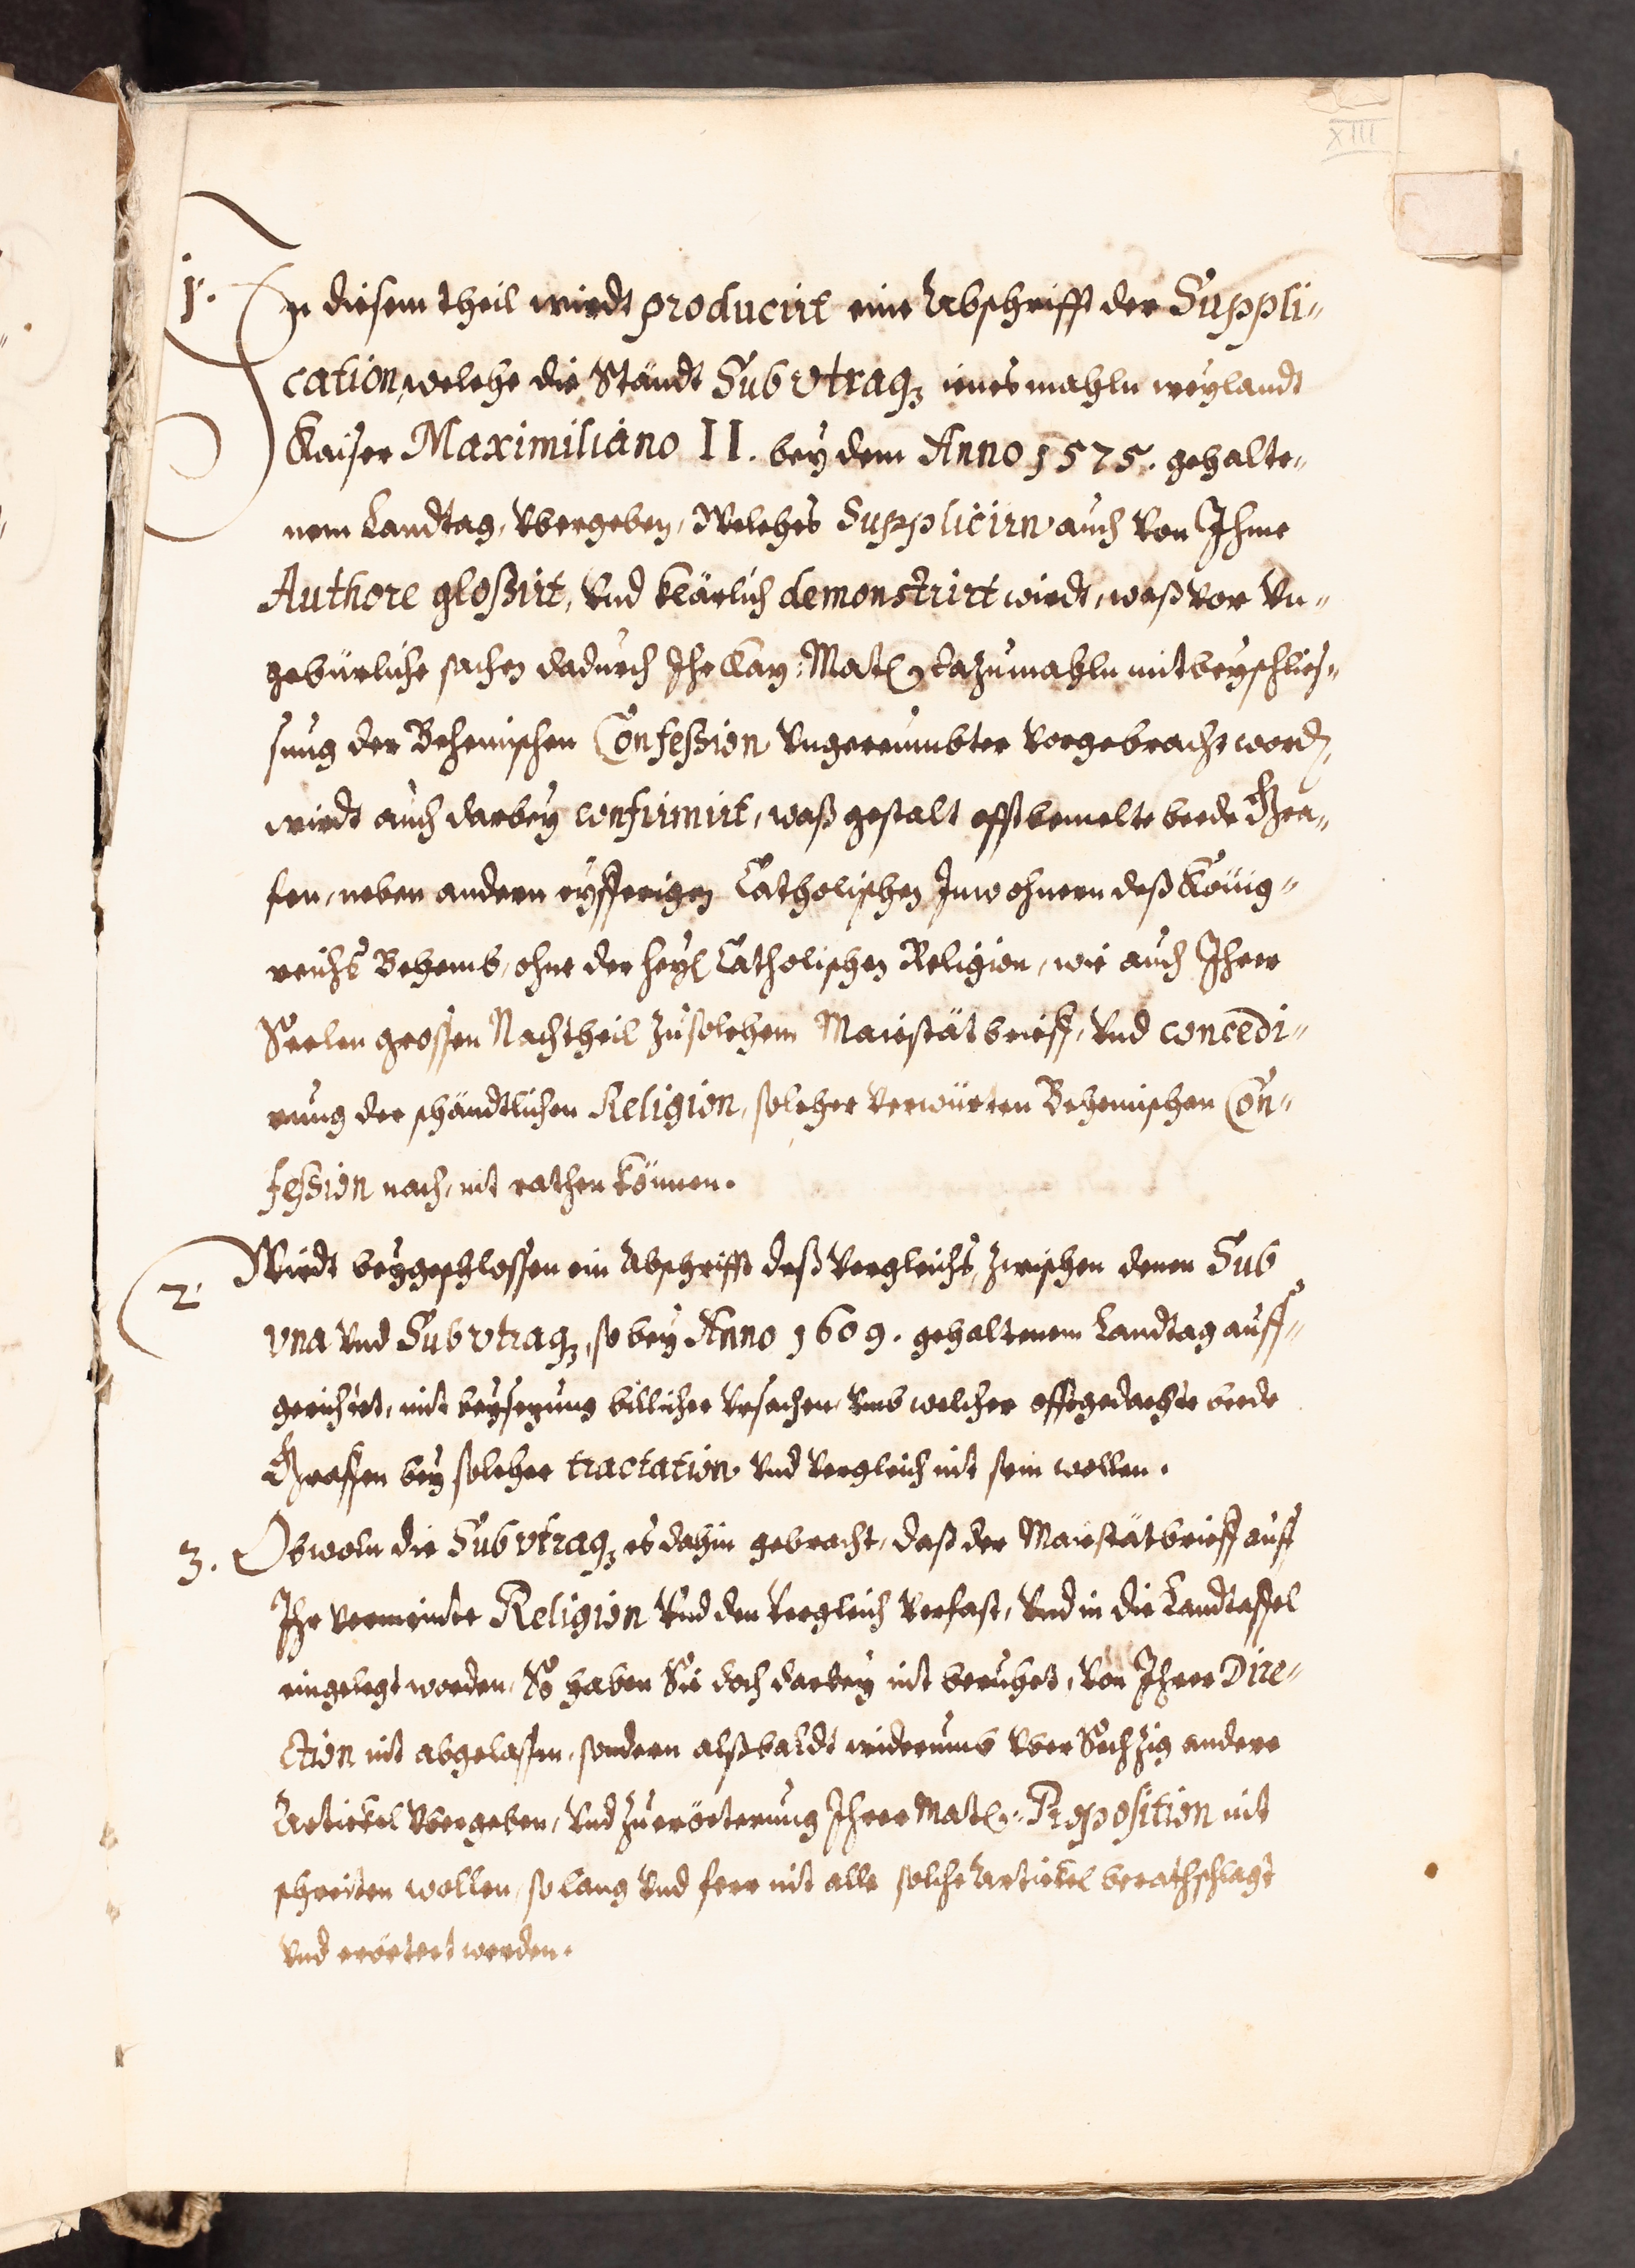 XIII
1. In diesem theil wirdt producirt eine Abschrifft der Suppli-
cation, welche die Ständt Sub vtraq3 jenesmahln weylandt
Kaiser Maximiliano II. bey dem Anno 1575. gehalte-
nem Landtag, vbergeben, Welches Supplicirn auch von Ihme
Authore gloßirt, vnd klärlich demonstrirt wirdt, waß vor vn-
gebürliche sachen dadurch Ihr Kay: Matt dazumahln mit beyschlies-
sung der Behemischen Confeßion vngereumbter vorgebracht word,
wirdt auch darbey confirmirt, waß gestalt offtbemelte beede Gra-
fen, neben andern eyfferigen Catholischen Inwohnern deß König-
reichs Behemb, ohne der heyl Catholischen Religion, wie auch Ihrer
Seelen grossen Nachtheil zu solchem Maiestätbrieff, vnd concedi-
rung der schändtlichen Religion, solcher verwürten Behemischen Con-
feßion nach, nit rathen können.
2. Wirdt beygeschlossen ein Abschrifft deß Vergleichs, zwischen denen Sub
vna vnd Sub vtraq3, so bey Anno 1609. gehaltenem Landtag auff-
gericht, mit beysezung billicher vrsachen, vmb welcher offtgedachte beede
Graffen bey solcher tractation vnd Vergleich nit sein wollen.
3. Obwoln die Sub vtraq3 es dahin gebracht, daß der Maiestätbrieff auff
Ihr vermeinte Religion vnd den Vergleich verfast, vnd in die Landtaffel
eingelegt worden, So haben Sie doch darbey nit beruhet, von Ihrer Dire-
ction nit abgelassen, sondern alßbaldt widerumb vber Sechzig andere
Artickel vbergeben, vnd zu erörterung Ihrer Matt: Proposition nit
schreiten wollen, so lang vnd ferr nit alle solche Artickel berathschlagt
vnd erörtert werden.